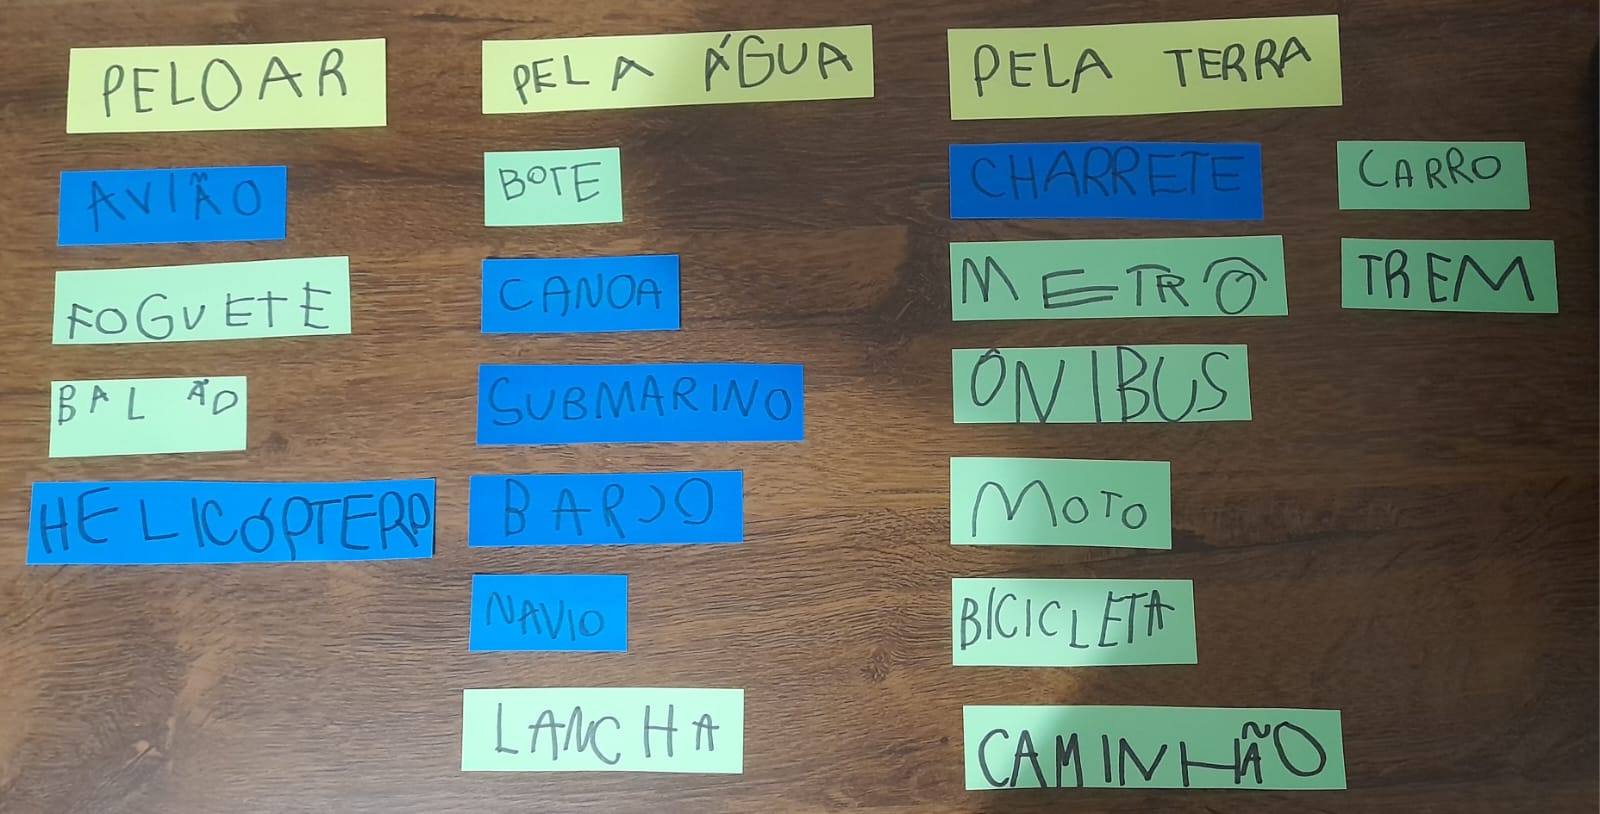 PELO AR
AVIÃO
FOGUETE
BALÃO
HELICÓPTERO
PELA ÁGUA
BOTE
CANOA
SUBMARINO
BARCO
NAVIO
LANCHA
PELA TERRA
CHARRETE
METRÔ
ÔNIBUS
MOTO
BICICLETA
CAMINHÃO
CARRO
TREM